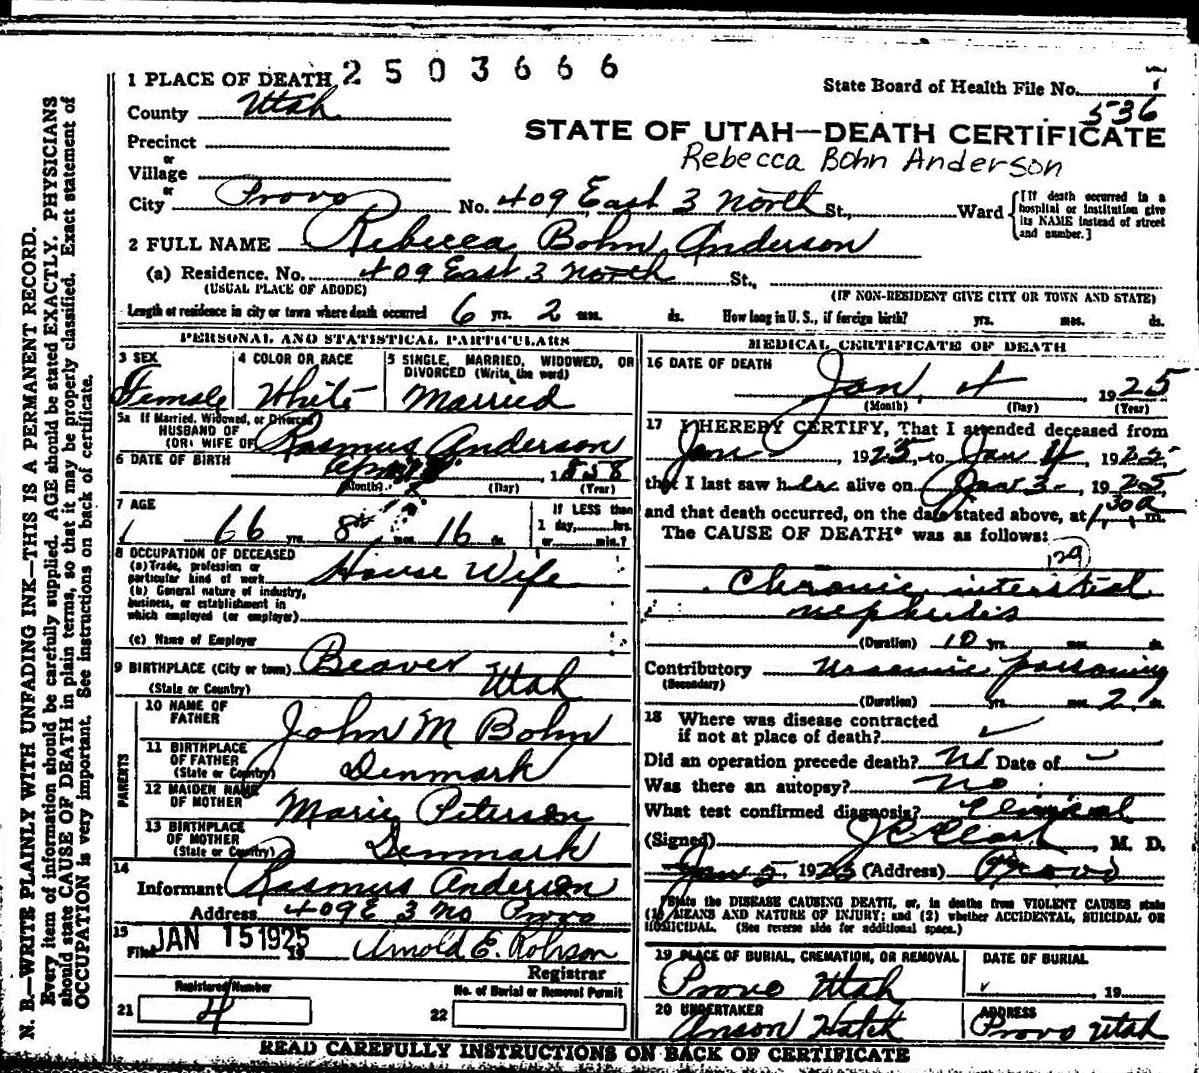 1 PLACE OF DEATH 2 5 0 3 6 6 6
State Board of Health File No. 1
536
County Utah
STATE OF UTAH—DEATH CERTIFICATE
Precinct
or
Rebecca Bohn Anderson
Village
or
City Provo No. 409 East 3 North St., Ward [If death occurred in a hospital or institution give its NAME instead of street and number.]
2 FULL NAME Rebecca Bohn Anderson
(a) Residence. No. 409 East 3 North St.,
(USUAL PLACE OF ABODE) (IF NON-RESIDENT GIVE CITY OR TOWN AND STATE)
Length of residence in city or town where death occurred 6 yrs. 2 mos. ds. How long in U. S., if foreign birth? yrs. mos. ds.
PERSONAL AND STATISTICAL PARTICULARS
3 SEX
Female
4 COLOR OR RACE
White
5 SINGLE, MARRIED, WIDOWED, OR
DIVORCED (Write the word)
Married
5a If Married, Widowed, or Divorced
HUSBAND OF
(OR) WIFE OF Rasmus Anderson
6 DATE OF BIRTH 1858
(Month) (Day) (Year)
7 AGE
66 yrs. 8 mos. 16 ds.
If LESS than
1 day, hrs.
or min.?
8 OCCUPATION OF DECEASED
(a) Trade, profession or
particular kind of work House Wife
(b) General nature of industry,
business, or establishment in
which employed (or employer)
(c) Name of Employer
9 BIRTHPLACE (City or town) Beaver
(State or Country) Utah
PARENTS
10 NAME OF
FATHER John M Bohn
11 BIRTHPLACE
OF FATHER
(State or Country) Denmark
12 MAIDEN NAME
OF MOTHER Marie Peterson
13 BIRTHPLACE
OF MOTHER
(State or Country) Denmark
14
Informant Rasmus Anderson
Address 409 E 3 No Provo
15
Filed JAN 15 1925 19 Arnold E. Robison
Registrar
Registered Number
21 4
No. of Burial or Removal Permit
22
MEDICAL CERTIFICATE OF DEATH
16 DATE OF DEATH
Jan. 4 1925
(Month) (Day) (Year)
17 I HEREBY CERTIFY, That I attended deceased from
Jan 1925, to Jan 4, 1925
that I last saw her alive on Jan 3- 1925
and that death occurred, on the date stated above, at 1 30a m.
The CAUSE OF DEATH* was as follows:
129
Chronic interstial
nephritis
(Duration) 10 yrs. mos. ds.
Contributory Uraemic poisoning
(Secondary)
(Duration) yrs. mos. 2 ds.
18 Where was disease contracted
if not at place of death?
Did an operation precede death? No Date of
Was there an autopsy? No
What test confirmed diagnosis? Clinical
(Signed) J C Clark, M. D.
Jan 5, 1925 (Address) Provo
State the DISEASE CAUSING DEATH, or, in deaths from VIOLENT CAUSES state
(1) MEANS AND NATURE OF INJURY; and (2) whether ACCIDENTAL, SUICIDAL OR
HOMICIDAL. (See reverse side for additional space.)
19 PLACE OF BURIAL, CREMATION, OR REMOVAL
Provo Utah
DATE OF BURIAL
19
20 UNDERTAKER
Anson Hatch
ADDRESS
Provo Utah
READ CAREFULLY INSTRUCTIONS ON BACK OF CERTIFICATE
N. B.—WRITE PLAINLY WITH UNFADING INK—THIS IS A PERMANENT RECORD.
Every item of information should be carefully supplied. AGE should be stated EXACTLY. PHYSICIANS
should state CAUSE OF DEATH in plain terms, so that it may be properly classified. Exact statement of
OCCUPATION is very important. See instructions on back of certificate.